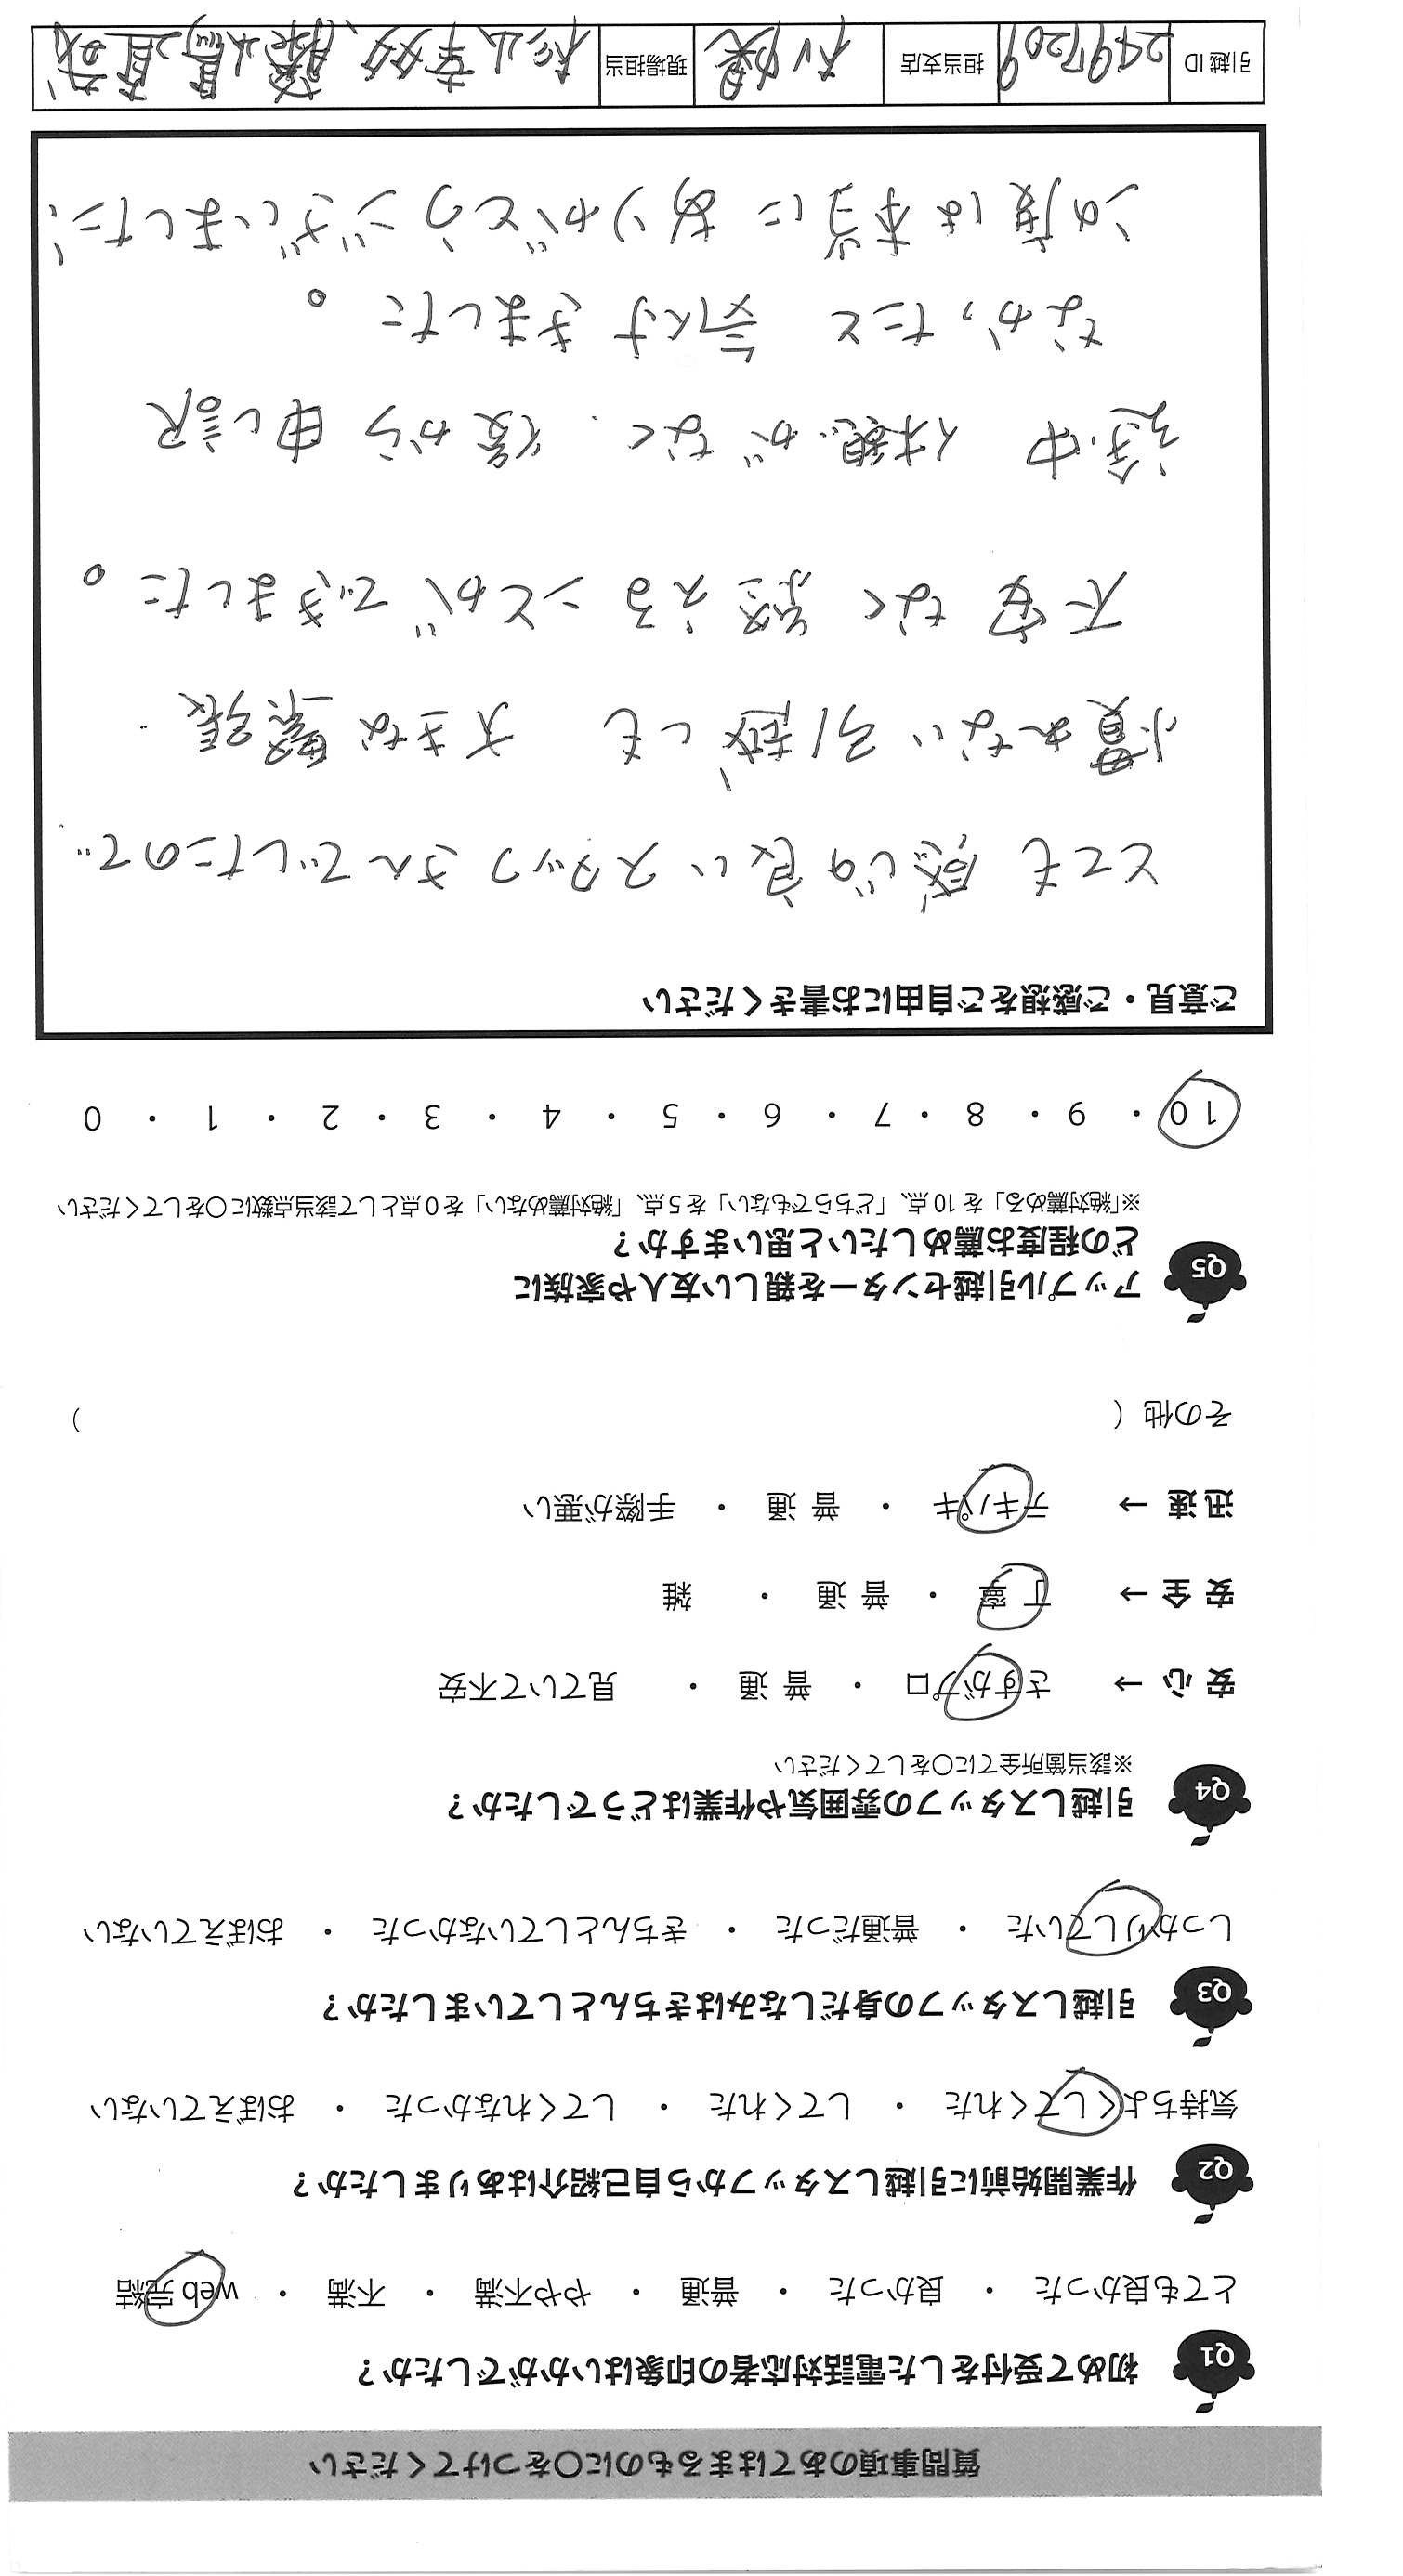 質問事項のあてはまるものに○をつけてください
Q1 初めて受付をした電話対応者の印象はいかがでしたか？
とても良かった ・ 良かった ・ 普通 ・ やや不満 ・ 不満 ・ web 完結
Q2 作業開始前に引越しスタッフから自己紹介はありましたか？
気持ちよくしてくれた ・ してくれた ・ してくれなかった ・ おぼえていない
Q3 引越しスタッフの身だしなみはきちんとしていましたか？
しっかりしていた ・ 普通だった ・ きちんとしていなかった ・ おぼえていない
Q4 引越しスタッフの雰囲気や作業はどうでしたか？
※該当箇所全てに○をしてください
安 心 → さすがプロ ・ 普 通 ・ 見ていて不安
安 全 → 丁 寧 ・ 普 通 ・ 雑
迅 速 → テキパキ ・ 普 通 ・ 手際が悪い
その他（ ）
Q5 アップル引越センターを親しい友人や家族に
どの程度お薦めしたいと思いますか？
※「絶対薦める」を 10 点、「どちらでもない」を 5 点、「絶対薦めない」を 0 点として該当点数に○をしてください
10 ・ 9 ・ 8 ・ 7 ・ 6 ・ 5 ・ 4 ・ 3 ・ 2 ・ 1 ・ 0
ご意見・ご感想をご自由にお書きください
とても 感じの良い スタッフ さんでしたので
慣れない 引越しも 大きな 緊張
不安 なく 終える ことが できました。
途中 休憩が なく、後から 申し訳
なかったと 気付きました。
この度は 本当に ありがとう ございました！
引越 ID 2497209 担当支店 札幌 現場担当 杉山幸多、